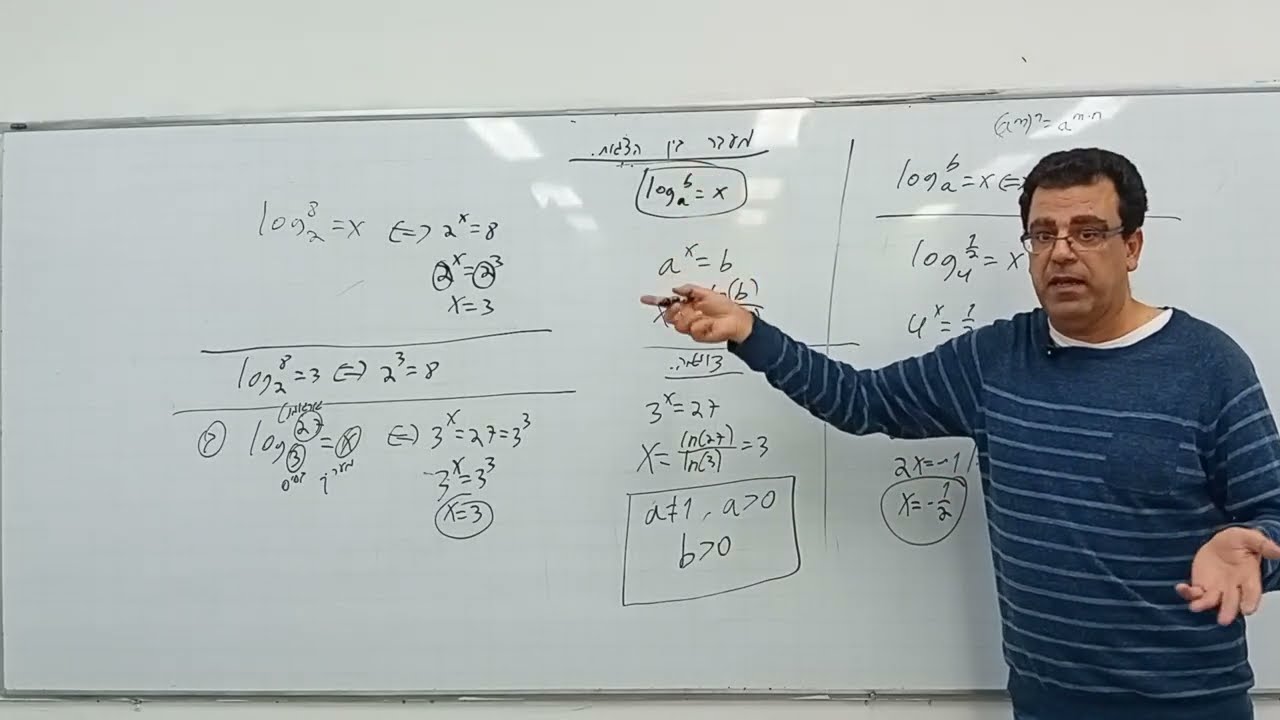 מעבר בין הצגות.
log_a^b = x
a^x = b
דוגמה:
3^x = 27
x = ln(27)/ln(3) = 3
a≠1, a>0
b>0
log_2^8 = x ⇔ 2^x = 8
2^x = 2^3
x = 3
log_2^8 = 3 ⇔ 2^3 = 8
log_3^27 = x ⇔ 3^x = 27 = 3^3
בסיס
3^x = 3^3
x = 3
(a^m)^n = a^m·n
log_a^b = x
log_4^1/2 = x
4^x = 1/2
2x = -1
x = -1/2